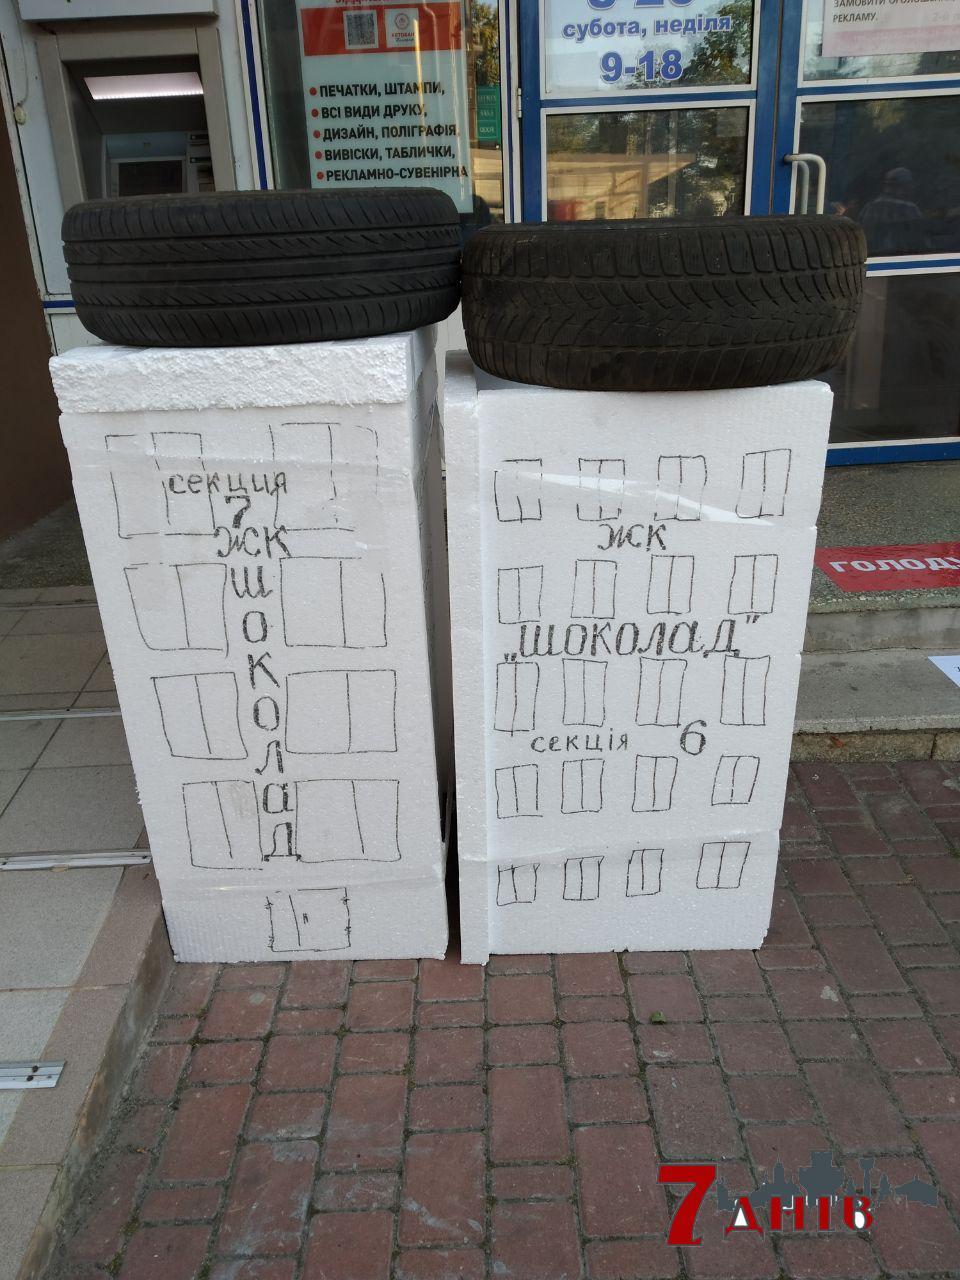 ПЕЧАТКИ, ШТАМПИ,
ВСІ ВИДИ ДРУКУ,
ДИЗАЙН, ПОЛІГРАФІЯ,
ВИВІСКИ, ТАБЛИЧКИ,
РЕКЛАМНО-СУВЕНІРНА
субота, неділя
9-18
РЕКЛАМУ.
секция
7
ЖК
шоколад
ЖК
"шоколад"
секція 6
ГОЛОДУ
7 днів